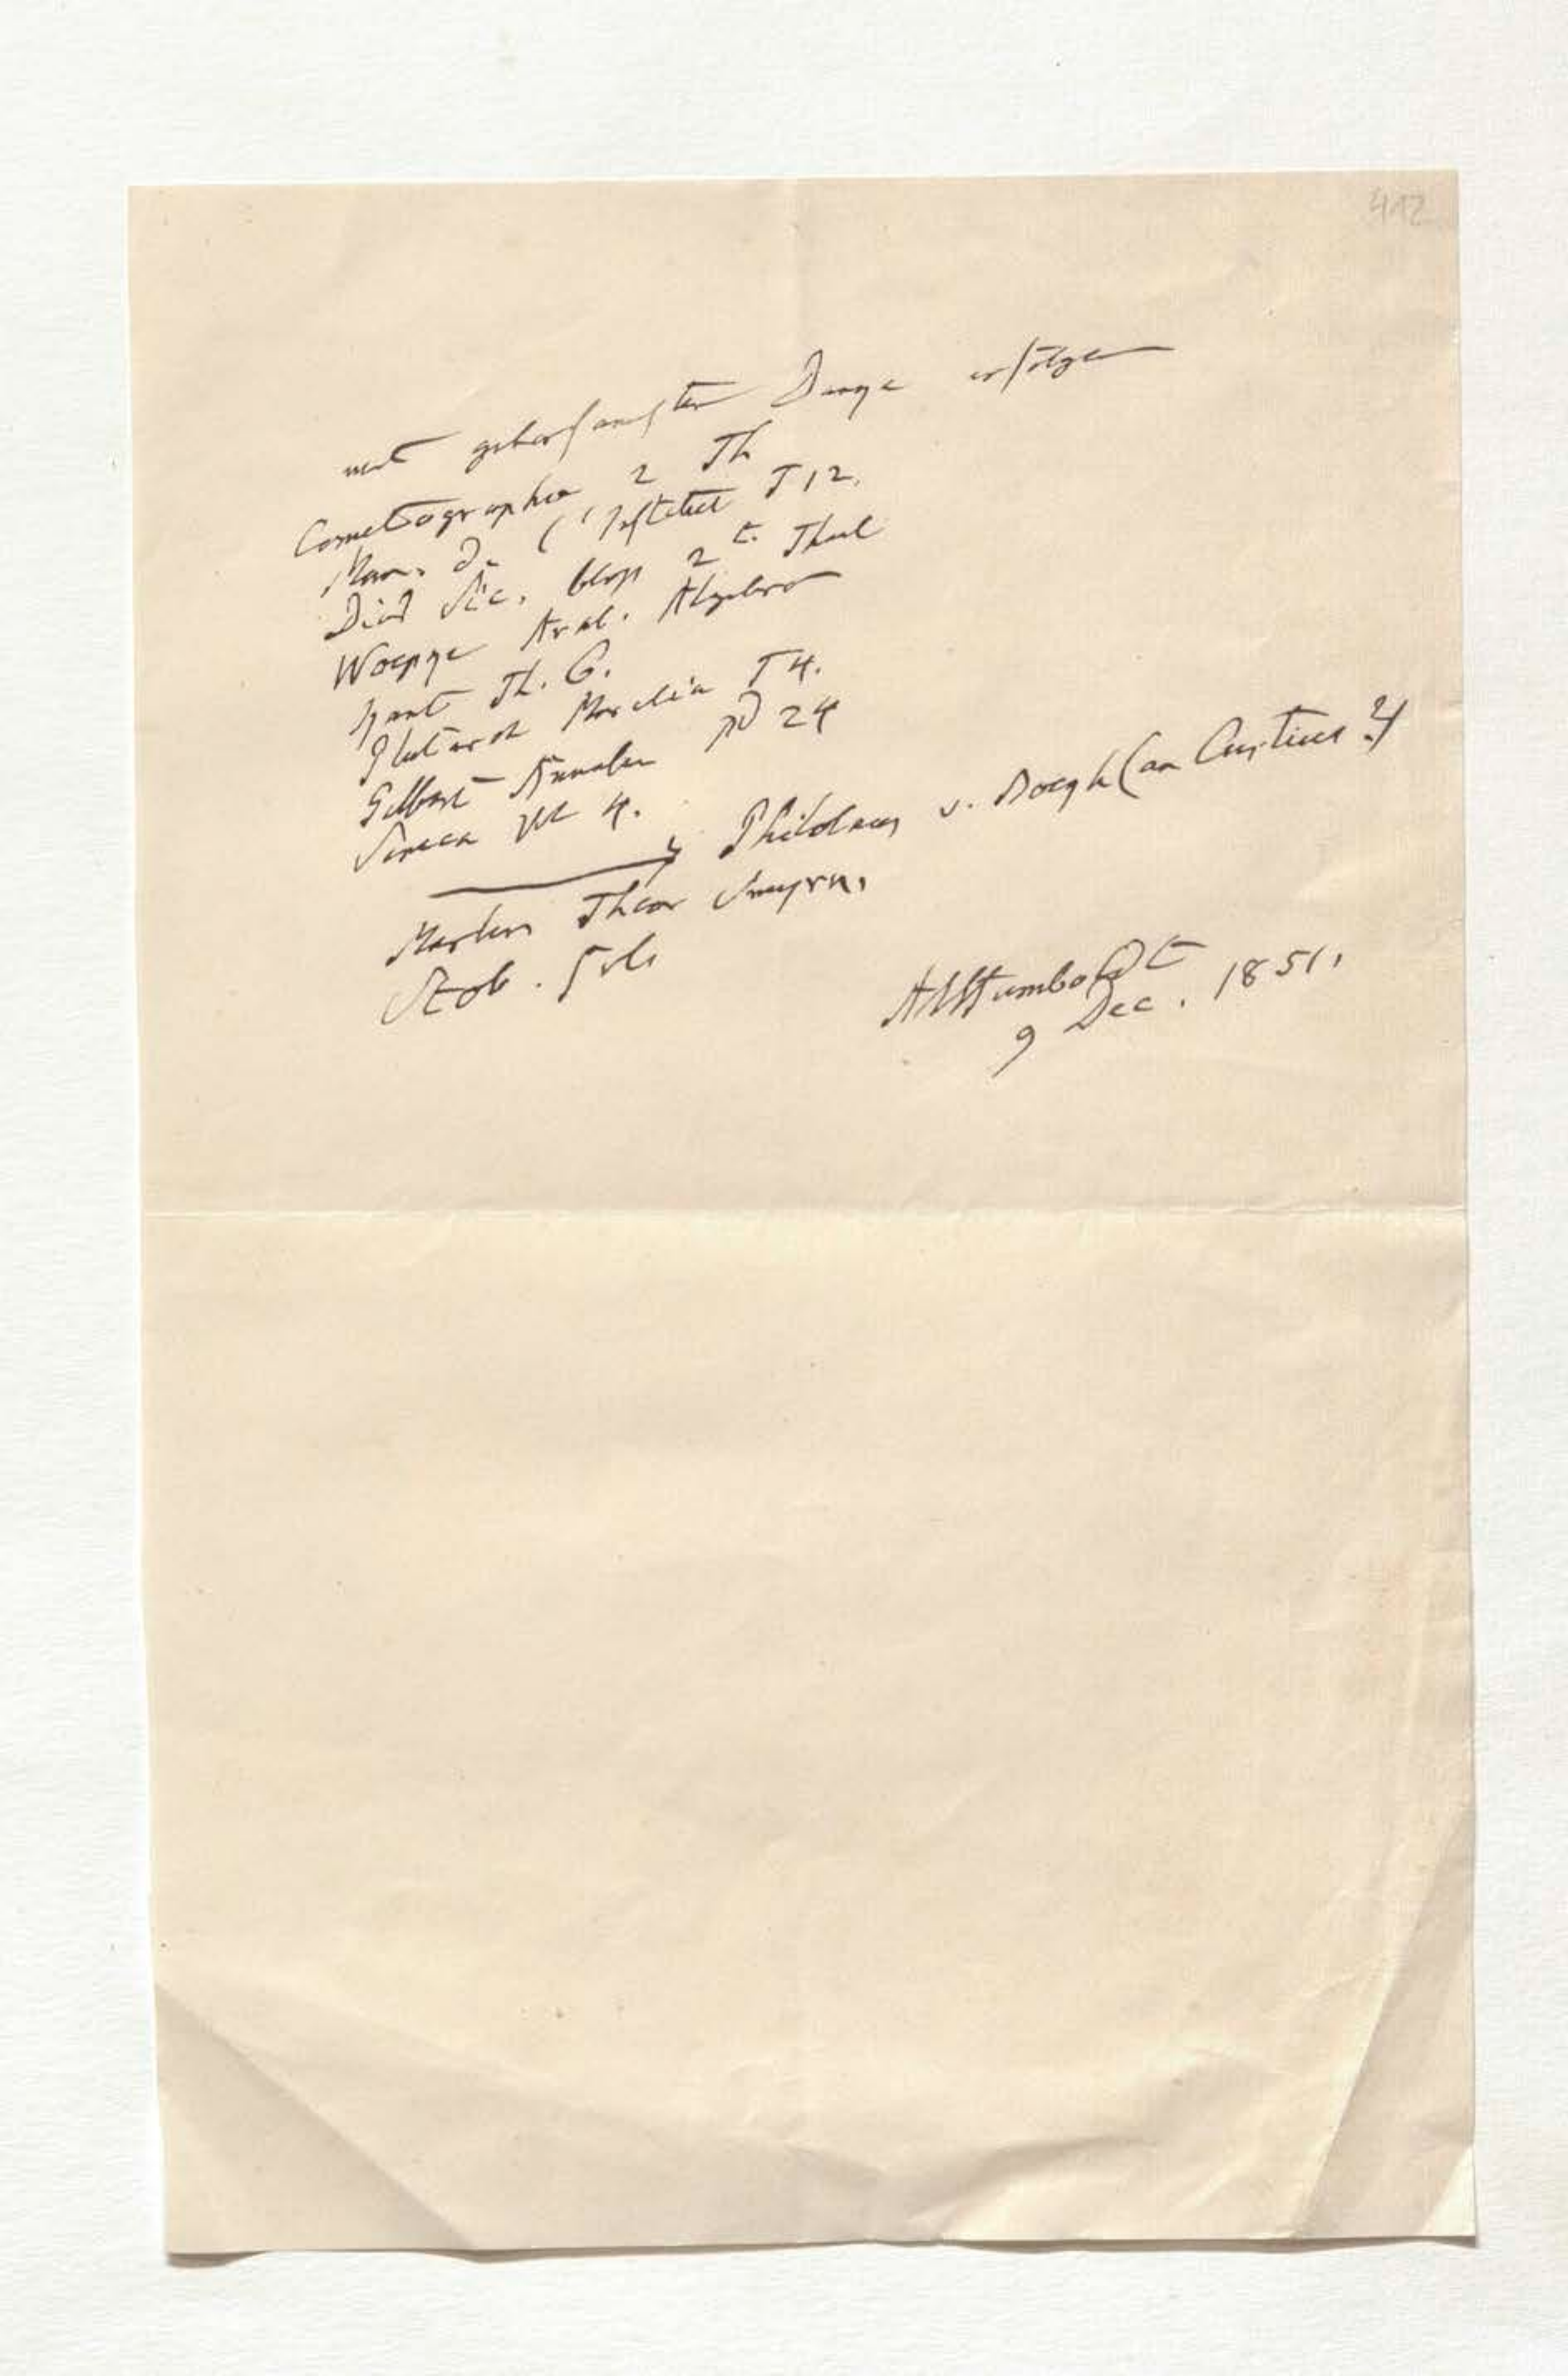 412
mit gehorsamsten Dange erfolgen
Cometographie 2 Th
Mem. de l'Institut T 12.
Diod Sic. blos 2 t. Theil
Woepge Arab. Algebra
Kant Th. 6.
Plutarch Moralia T 4.
Gilbert Annalen Bd 24
Seneca Vol 4.
Philolaus v. Boegh (an Curtius?)
Martin Theon Smyrn.
Stob.
AlHumboldt
9 Dec. 1851.